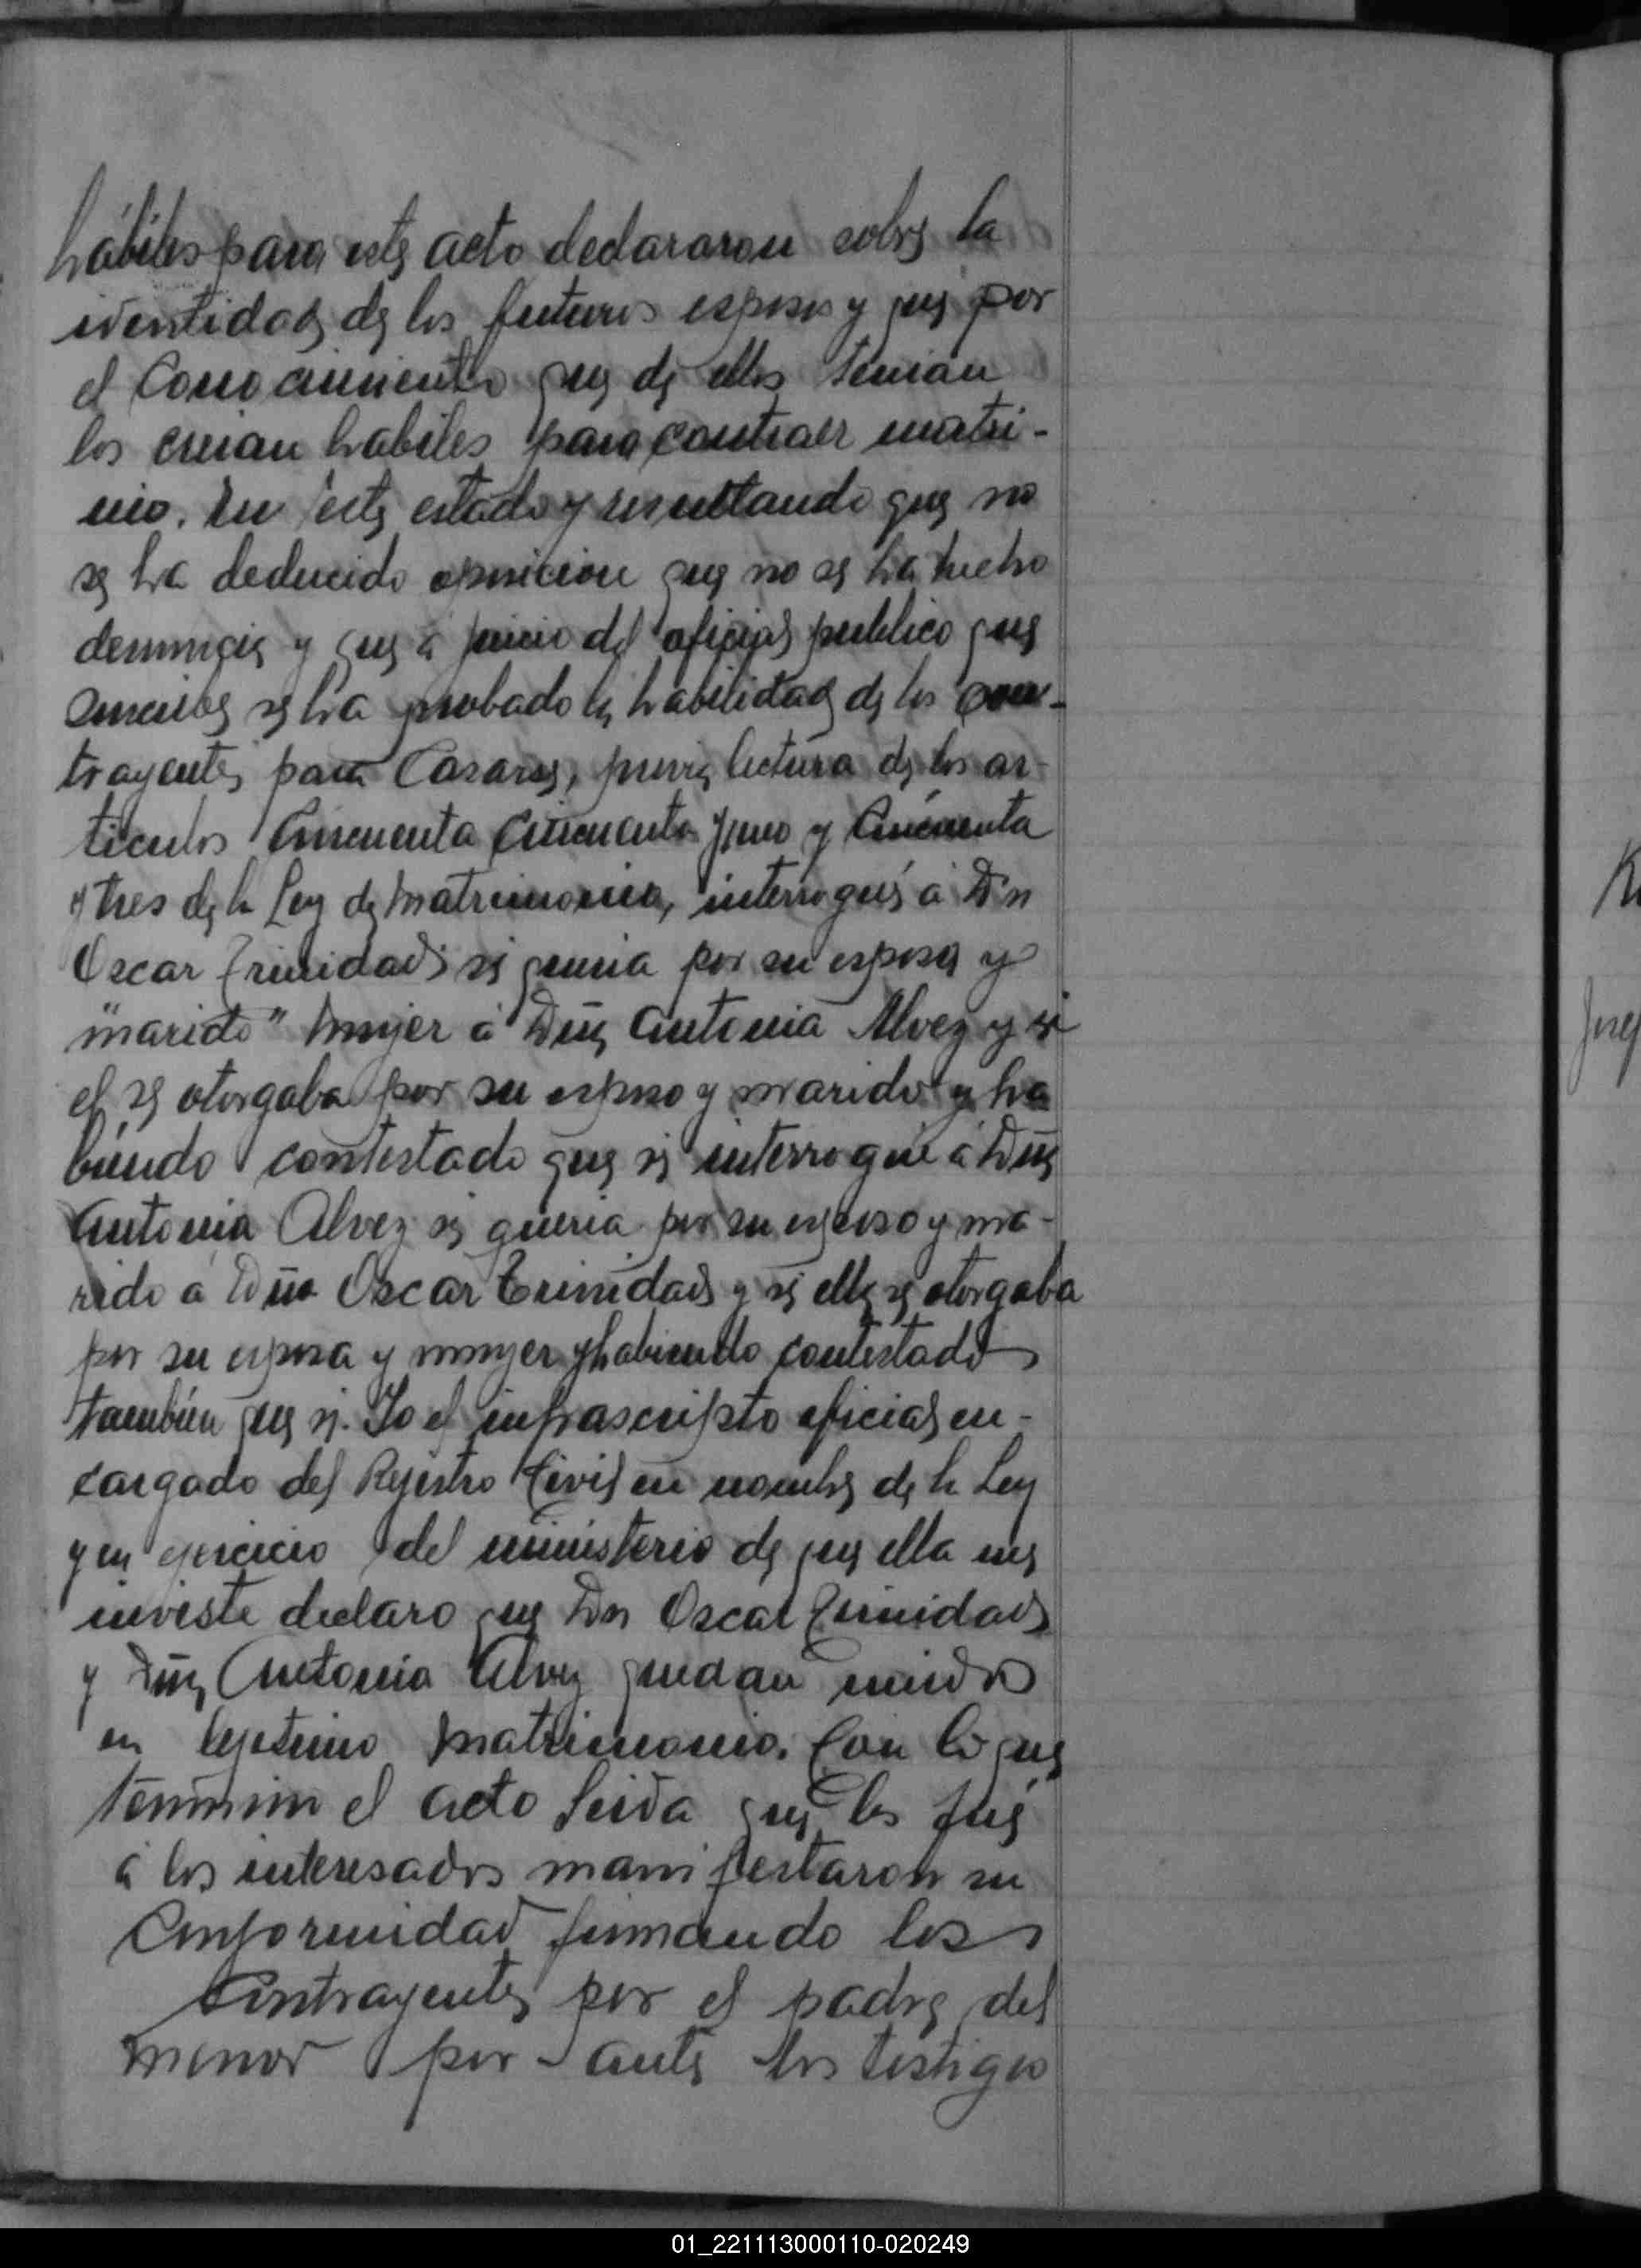 hábiles para este acto declararon sobre la
identidad de los futuros esposos y que por
el Conocimiento que de ellos tenian
los creian habiles para contraer matri-
nio. En este estado y resultando que no
se ha deducido oposicion que no se ha hecho
denuncia y que á juicio del oficial publico que
suscribe se ha probado la habilidad de los con-
trayentes para Casarse, previa lectura de los ar-
ticulos Cincuenta Cincuenta y uno y Cincuenta
y tres de la Ley de Matrimonio, interrogué á Dn
Oscar Trinidad si queria por su esposa y
"marido" mujer á Dña Antonia Alvez y si
el se otorgaba por su esposo y marido y ha
biendo contestado que si interrogué á Dña
Antonia Alvez si queria por su esposo y ma-
rido á Dn Oscar Trinidad y si ella se otorgaba
por su esposa y mujer y habiendo contestado
también que si. Yo el infrascripto oficial en-
cargado del Rejistro Civil en nombre de la Ley
y en ejercicio del ministerio de que ella me
inviste declaro que Dn Oscar Trinidad
y Dña Antonia Alvez quedan unidos
en lejitimo Matrimonio. Con lo que
terminó el acto Leida que les fué
á los interesados manifestaron su
Conformidad firmando los
Contrayentes por el padre del
menor por ante los testigos